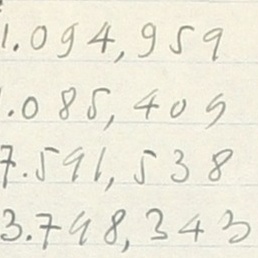 1.094,959
1.085,409
7.591,538
3.798,343